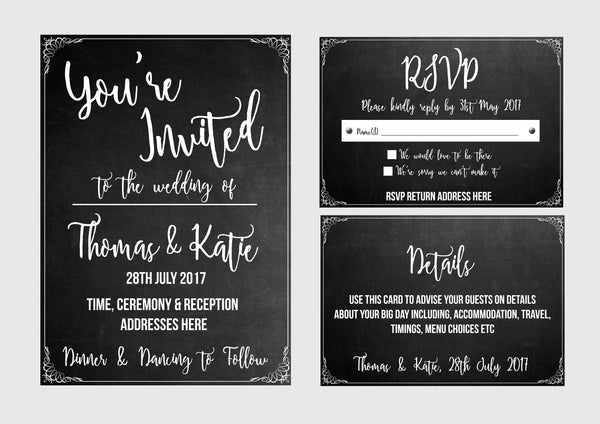 You're
Invited
to the wedding of
Thomas & Katie
28TH JULY 2017
TIME, CEREMONY & RECEPTION
ADDRESSES HERE
Dinner & Dancing to Follow
RSVP
Please kindly reply by 31st May 2017
Name(s)
We would love to be there
We're sorry we can't make it
RSVP RETURN ADDRESS HERE
Details
USE THIS CARD TO ADVISE YOUR GUESTS ON DETAILS
ABOUT YOUR BIG DAY INCLUDING, ACCOMMODATION, TRAVEL,
TIMINGS, MENU CHOICES ETC
Thomas & Katie, 28th July 2017